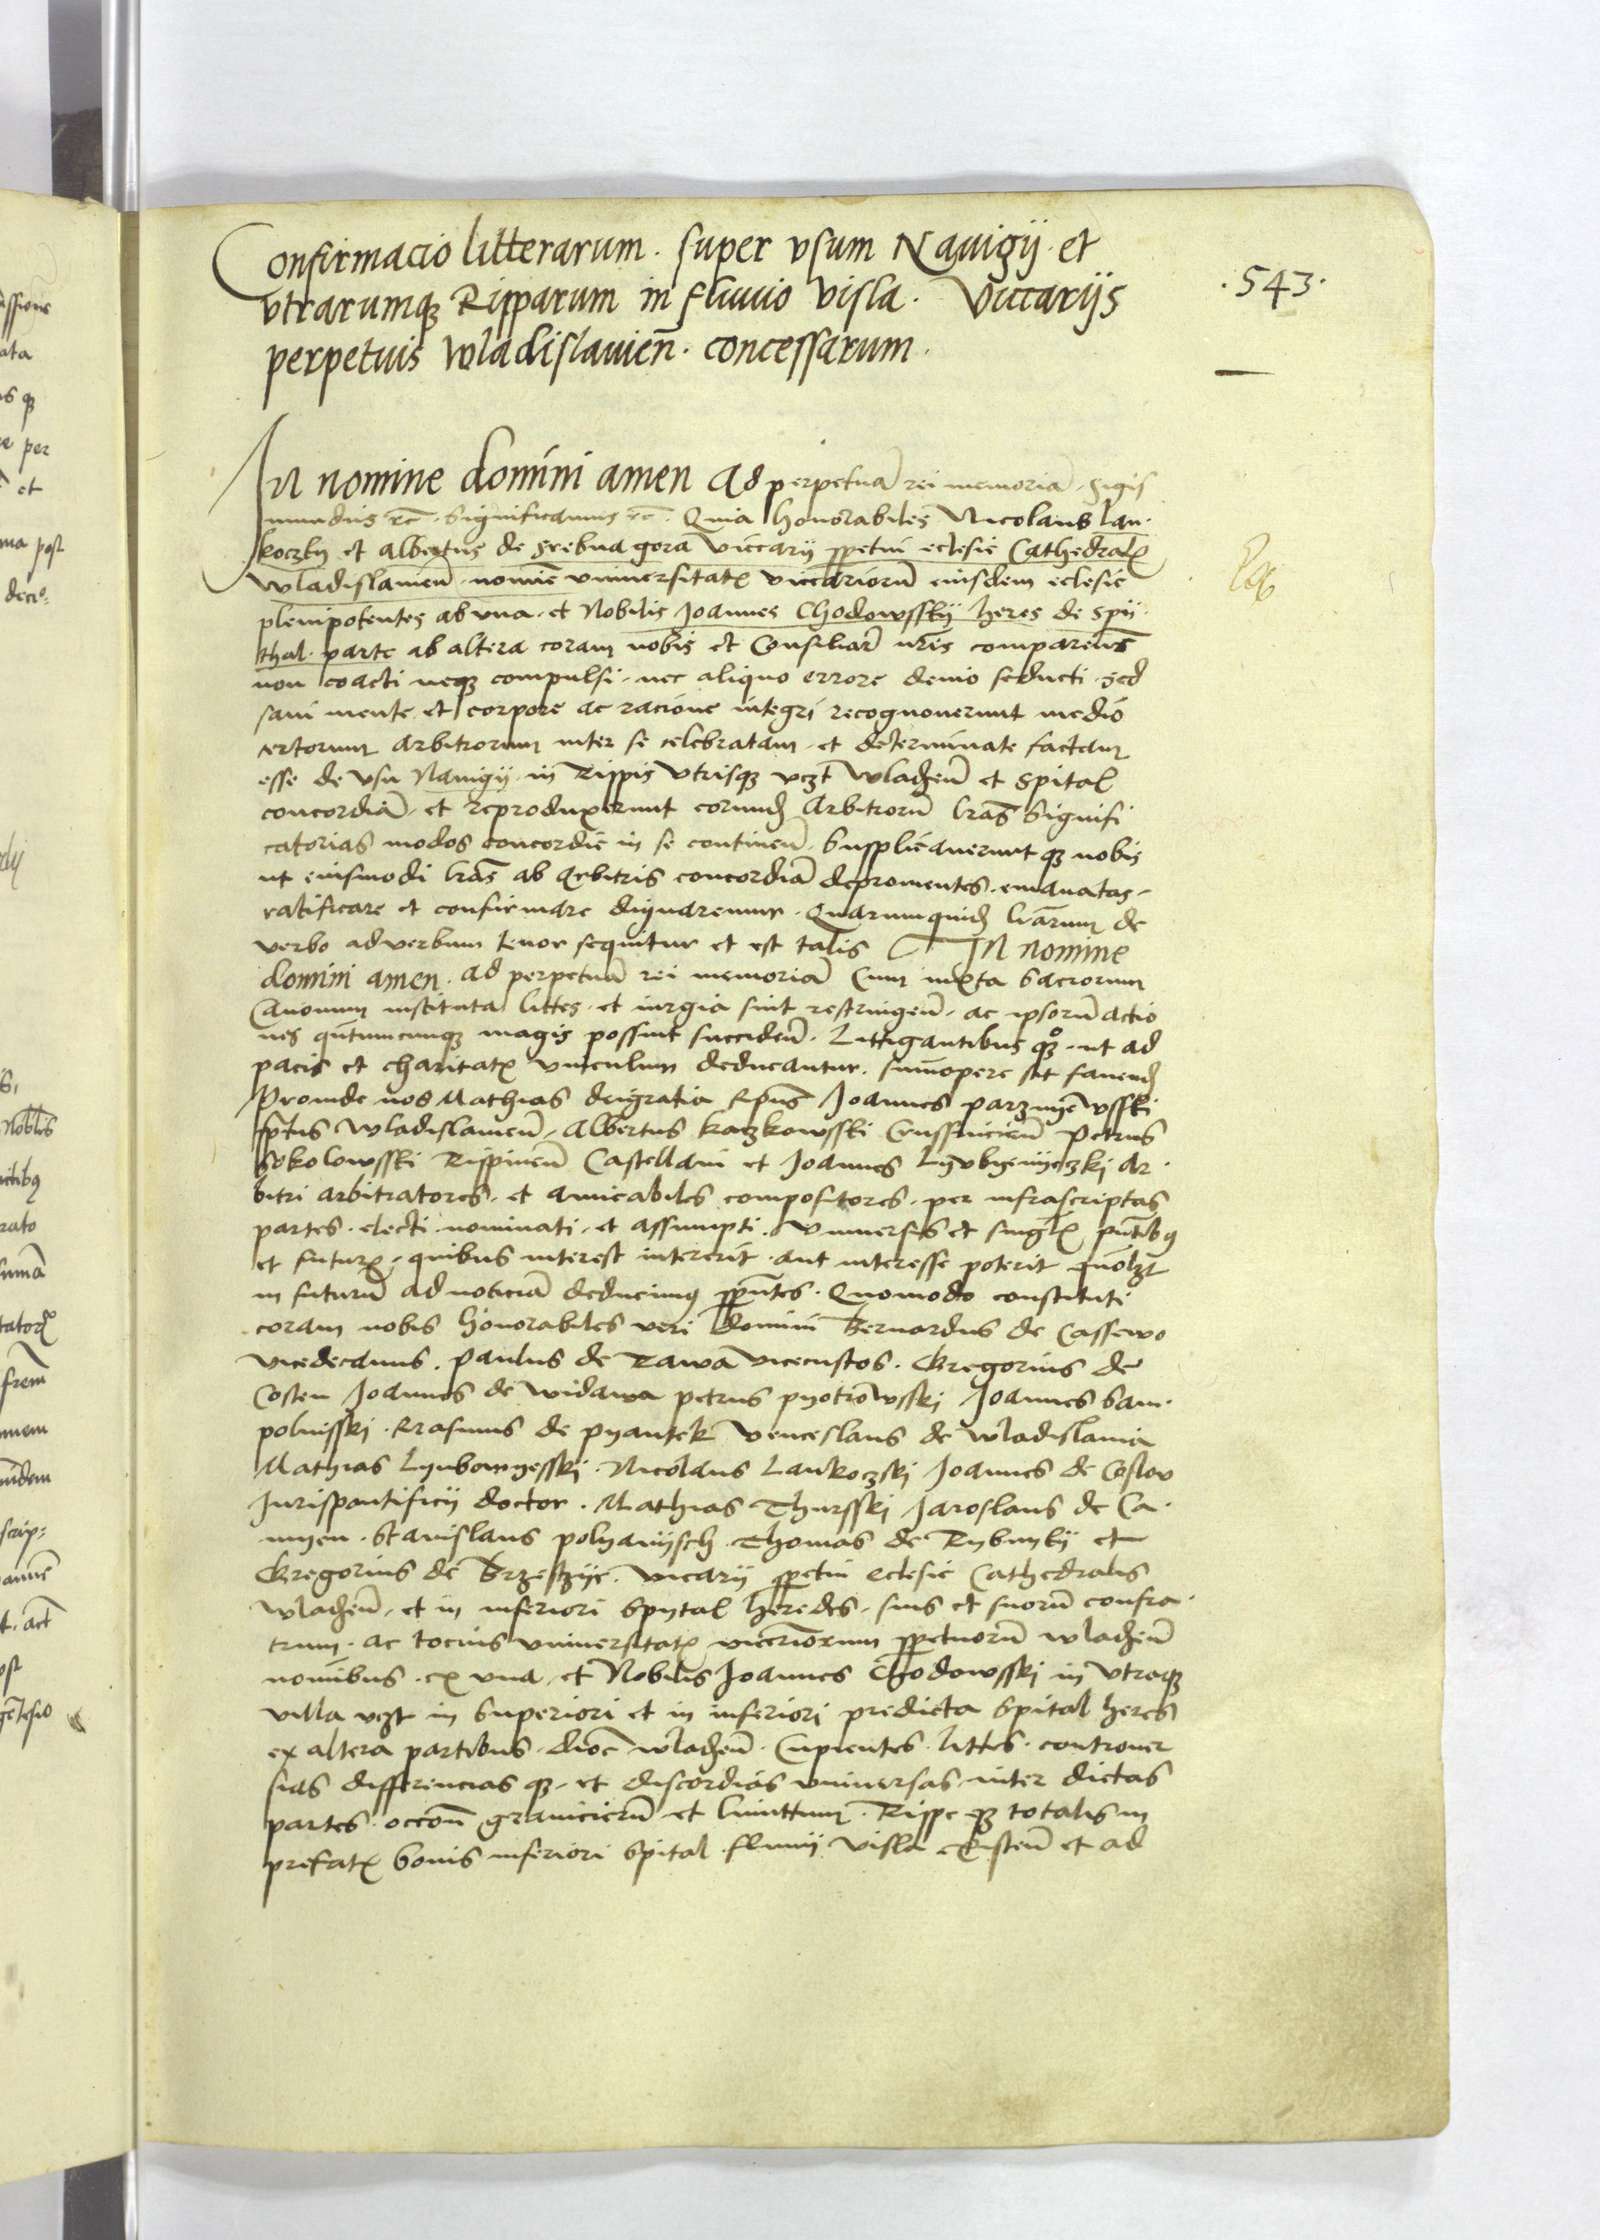 Confirmacio litterarum · super vsum Nauigij · et
vtrarumq3 Ripparum in fluuio visla · Viccarijs
perpetuis wladislauien̄ · concessarum ·
· 543 ·
In nomine domini amen Ad perpetuā rei memoriā · Sigis
mundus rc̄ · Significamus rc̄ · Quia honorabiles Nicolaus lan ·
koczky et albertus de srebna gora viccarij ppetui eclesie Cathedral
wladislauien̄ · nomīe vniuersitat viccariorū eiusdem eclesie
plenipotentes ab vna · et Nobilis Joannes Chodowsskij heres de spij
thal · parte ab altera coram nobis et Consiliar̄ nr̄is comparen̄s
non coacti neq3 compulsi · nec aliquo errore deuio seducti · sed
sani mente et corpore ac racione integri recognouerunt medio
certorum arbitrorum inter se celebratam · et determinate factam
esse de vsu Nauigij in Rippis vtrisq3 vczt wladzen̄ et spital
concordiā · et reproduxerunt eorund arbitrorū lr̄as Signifi
catorias modos concordie in se continen̄ · Supplicauerunt q3 nobis
ut eiusmodi lr̄as ab arbitris concordiā depromentes · emanatas ·
ratificare et confirmare dignaremur · Quarumquid lr̄arum de
verbo ad verbum tenor sequitur et est talis In nomine
domini amen · ad perpetuā rei memoriā Cum iuxta sacrorum
Canonum instituta littes · et iurgia sint restringen̄ · ac ipsorū actio
nes qn̄tumcunq3 magis possint succiden̄ · Littigantibus q3 · ut ad
pacis et charitat vinculum deducantur · summopere sit fauend
Proinde nos Mathias dei gratia Ep̄us Joannes parzniewsski
wladislauien̄ · Albertus kaczkowsski Crusfuicien̄ Petrus
Sokolowsski Rippinen̄ Castellani et Joannes ar ·
bitri arbitratores · et amicabiles compositores · per infrascriptas
partes · electi · nominati · et assumpti · Vniuersis et singl pn̄tibus
et futur · quibus interest intererit · aut interesse poterit quōlzt
in futurū ad noticiā deducimus ppn̄tes · Quomodo constituti
coram nobis honorabiles veri domini Bernardus de Cassewo
vicedecanus · Paulus de Rawa vicecustos · Gregorius de
Costen Joannes de widawa petrus pyotrowsski Joannes Sam ·
polinsski · Erasmus de pyantek Venceslaus de wladislauia
Mathias Lyubomyesski · Nicolaus Lankoczski Joannes de Coslov
Jurispontificij doctor · Mathias Thursski Jaroslaus de Ca ·
myen · Stanislaus polyanijsch · Thomas de Rybnyky et
Gregorius de Brzesczije · vicarij ppetui eclesie Cathedralis
wladzen̄ · et in inferiori Spytal heredes · suis et suorū confra ·
trum · ac tocius vniuersitat vicariorum ppetuorū wladzen̄
nomibus · ex vna · et Nobilis Joannes Chodowsski in vtraq3
villa vczt in superiori et in inferiori predicta Spital heres
ex altera partibus · dioc̄ wladzen̄ · Cupientes · littes · controuer
sias differencias q3 · et discordias vniuersas inter dictas
partes · occōn̄ granicierū et limittum · Rippe q3 totalis in
prefat bonis inferiori Spital · fluuij visla existen̄ et ad